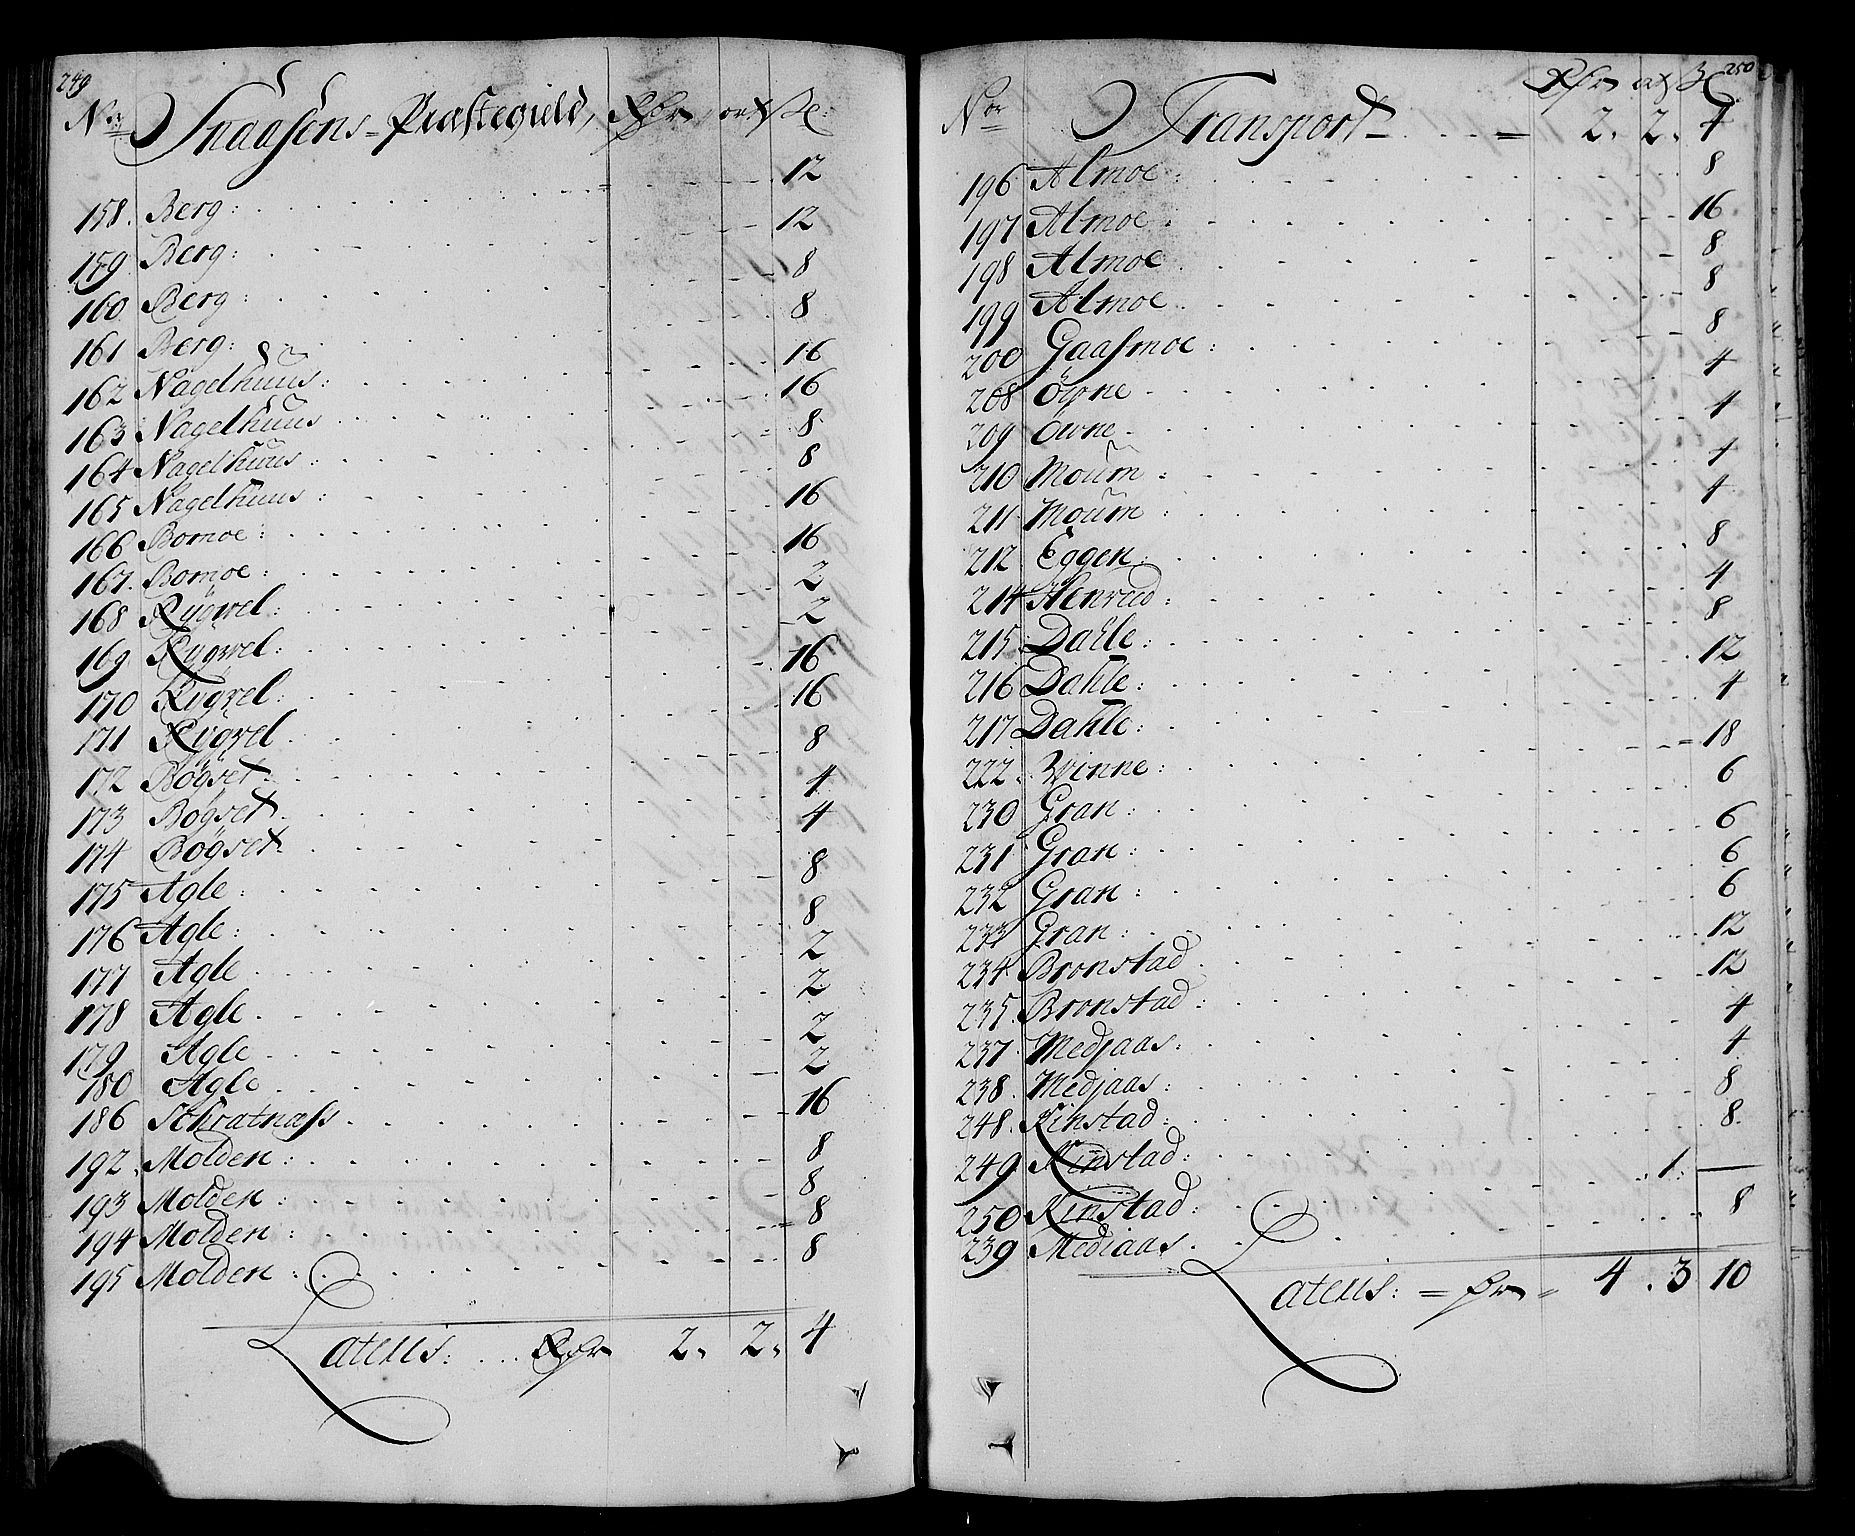 249
Nr: Snaasens-Præstegield, Rdr, ort, s:
158. Berg: 12
159 Berg: 12
160. Berg: 8
161 Berg: 8
162 Nagelhuus: 16
163 Nagelhuus 16
164 Nagelhuus: 8
165 Nagelhuus: 8
166 Bomoe: 16
167. Bomoe: 16
168 Rygwel: 2
169 Rygwel: 2
170 Rygvel: 16
171 Rygvel 16
172 Bögset: 8
173 Bogset 4
174 Bögset 4
175 Agle: 8
176 Agle: 8
177 Agle 2
178 Agle 2
179 Agle 2
180 Agle 2
186 Schratnass 16
192. Molden: 8
193 Molden: 8
194 Molden: 8
195 Molden: 8
Latens: Rdr 2. 2. 4
250
Nor Rdr ort s
Transport 2. 2. 4
196 Almoe: 8
197 Almoe 16
198 Almoe 8
199 Almoe 8
200 Gaasmoe: 8
208 Övne 4
209 Övne 4
210 Moum 4
211 Moum 4
212 Eggen 8
214 Henrud: 4
215 Dahle: 8
216 Dahle: 12
217 Dahle: 4
222. Winne: 18
230 Gran: 6
231 Gran: 6
232 Gran 6
233 Gran: 6
234 Bronstad 12
235 Bronstad: 12
237 Medjaas: 4
238. Medjaas: 4
248. Kinstad: 8
249 Kinstad: 8.
250 Kinstad: 1. —
239 Mediaas 8
Latens: = Rdr = 4. 3 10